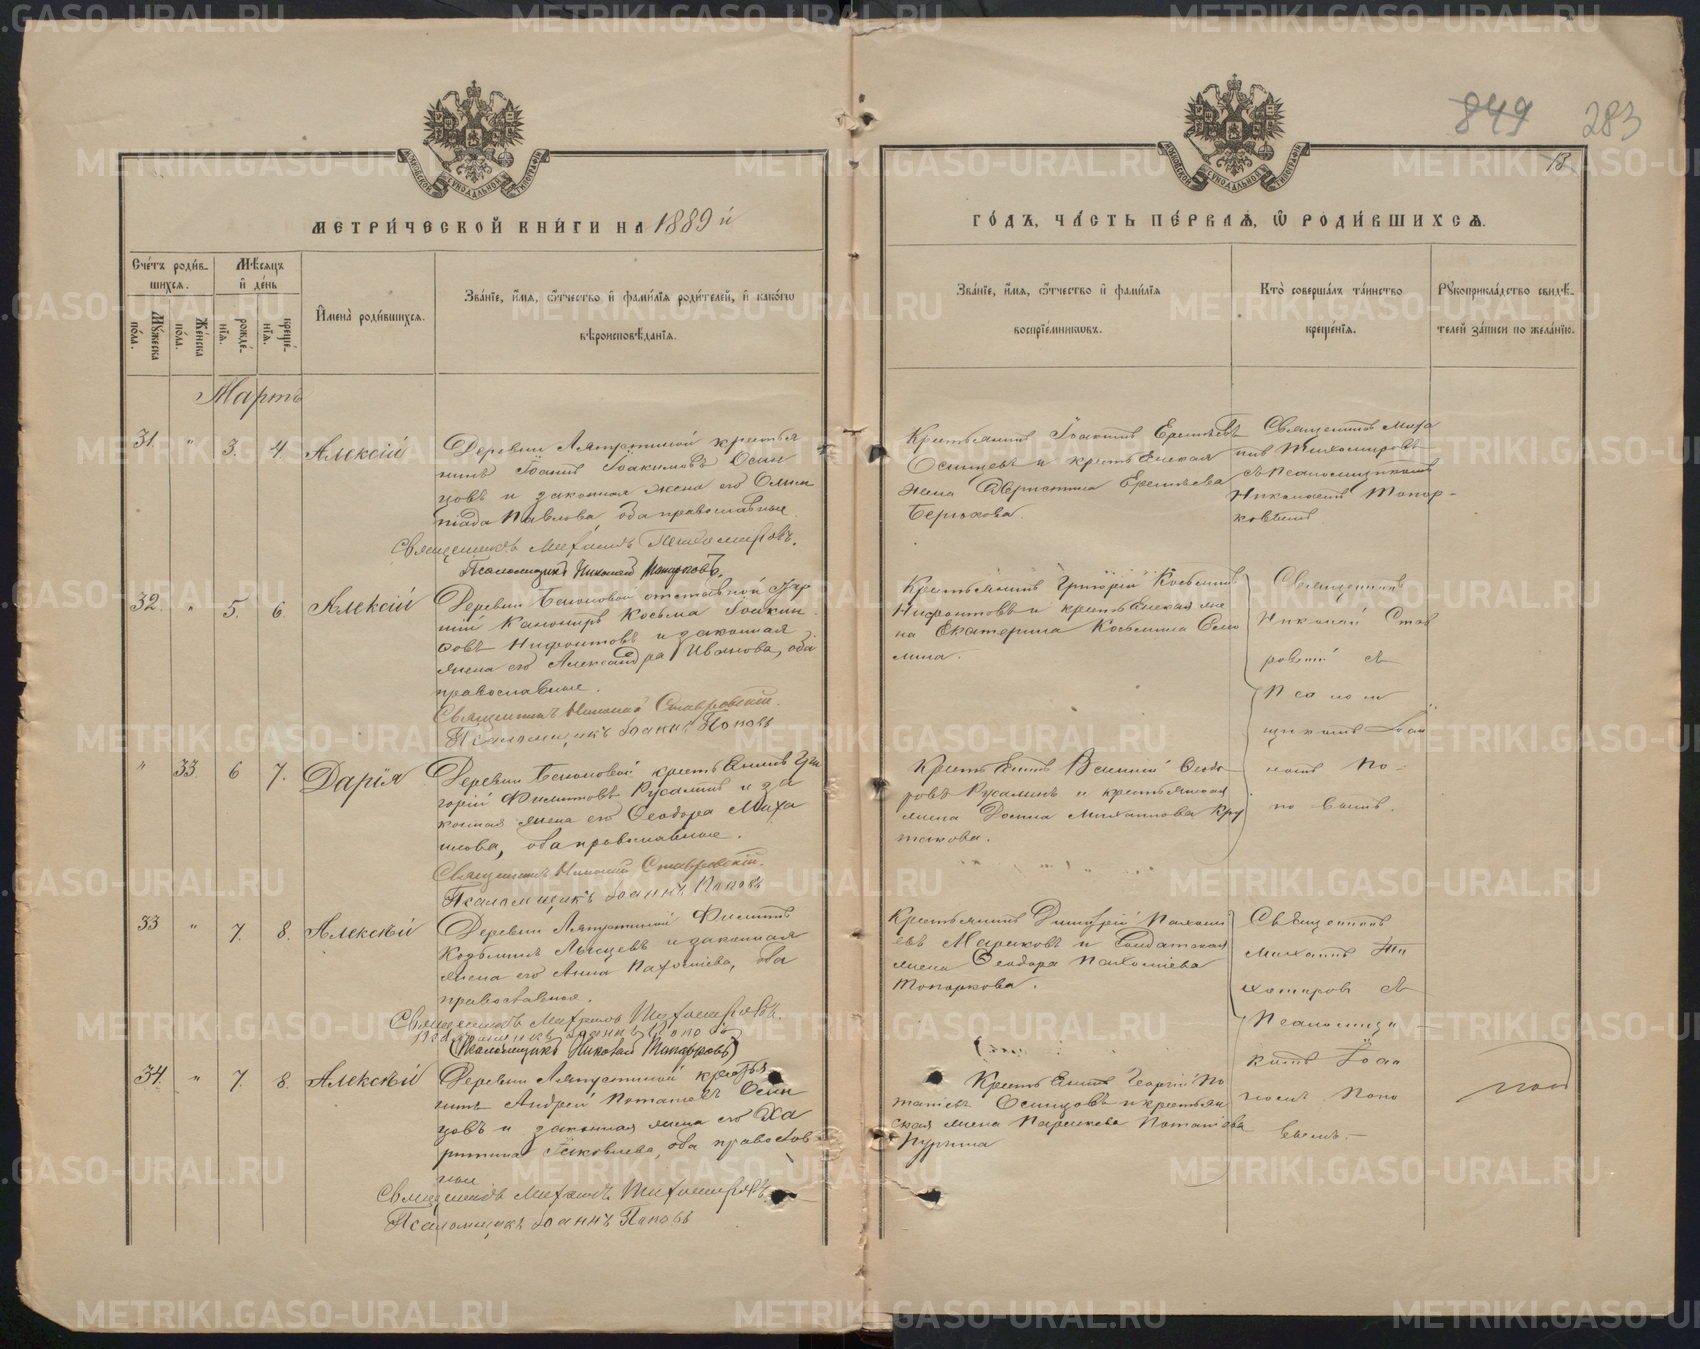 849 283
13
МОСКОВСКОЙ СѴНОДАЛЬНОЙ ТИПОГРАФІИ
МОСКОВСКОЙ СѴНОДАЛЬНОЙ ТИПОГРАФІИ
МЕТРИ́ЧЕСКОЙ КНИ́ГИ НА 1889 й
ГО́ДЪ, ЧА́СТЬ ПЕ́РВАѦ, Ѡ҆ РОДИ́ВШИХСѦ.
Сче́тъ роди́в-
шихсѧ.
Мꙋ́жеска
по́ла.
Же́нска
по́ла.
Мѣ́сѧцъ
и҆ де́нь
рожде́-
нїѧ.
креще́-
нїѧ.
И҆мена̀ роди́вшихсѧ.
Зва́нїе, и҆́мѧ, ѻ҆́тчество и҆ фами́лїѧ роди́телей, и҆ како́гѡ
вѣроисповѣ́данїѧ.
Зва́нїе, и҆́мѧ, ѻ҆́тчество и҆ фами́лїѧ
воспрїе́мникѡвъ.
Кто̀ соверша́лъ та́инство
креще́нїѧ.
Рꙋкоприкла́дство свидѣ́-
телей за́писи по жела́нїю.
Мартъ
31. " 3. 4. Алексій
Деревни Ляпустиной крестья
нинъ Іоаннъ Іоакимовъ Осин
цовъ и законная жена его Олим
піада Павлова, оба православные
Священникъ Михаилъ Тихомировъ.
Псаломщикъ Николай Топорковъ.
Крестьянинъ Іоакимъ
Осинцевъ и крестьянская
жена
Берюхова.
Священникъ Миха
илъ Тихомировъ
съ Псаломщикомъ
Николаемъ Топор-
ковымъ
32. " 5. 6. Алексій
Деревни отставной
Канониръ Косьма
совъ Нифонтовъ и законная
жена его Александра Иванова, оба
православные.
Священникъ Николай Ставровскій.
Псаломщикъ Іоаннъ Поповъ
Крестьянинъ Григорій Косьминъ
Нифонтовъ и крестьянская же
на Екатерина Косьмина
мина.
Священник
Николай Став
ровскій съ
Псалом
щикомъ Іоан
номъ По-
повымъ.
" 33. 6 7. Дарія
Деревни крестьянинъ Гри
горій Филиповъ Русалинъ и за
конная жена его Ѳеодора Миха
илова, оба православные.
Священникъ Николай Ставровскій.
Псаломщикъ Іоаннъ Поповъ
Крестьянинъ Василій Ѳеодо-
ровъ Русалинъ и крестьянская
жена Домна Михаилова Кру
такова.
33 " 7. 8. Алексѣй
Деревни Ляпустиной Филиппъ
Козьминъ и законная
жена его Анна Пахомієва, оба
православные.
Священникъ Михаилъ Тихомировъ.
Псаломщикъ Іоаннъ Попов
(Псаломщикъ Николай Топорковъ)
Крестьянинъ Димитрій Пахоми
евъ Марковъ и Солдатская
жена Ѳеодора Пахомієва
Топоркова.
Священник
Михаилъ Ти
хомиров съ
Псаломщи-
комъ Іоан
номъ Попо
вымъ.
34. " 7. 8. Алексѣй
Деревни Ляпустиной крестья
нинъ Андрей Потапіевъ Осин
цовъ и законная жена его Ха
ритина Іаковлева, оба православ
ные
Священникъ Михаилъ Тихомировъ.
Псаломщикъ Іоаннъ Поповъ
Крестьянинъ Георгій По
тапіевъ Осинцовъ и крестьян
ская жена Параскева Потапіова
Пургина